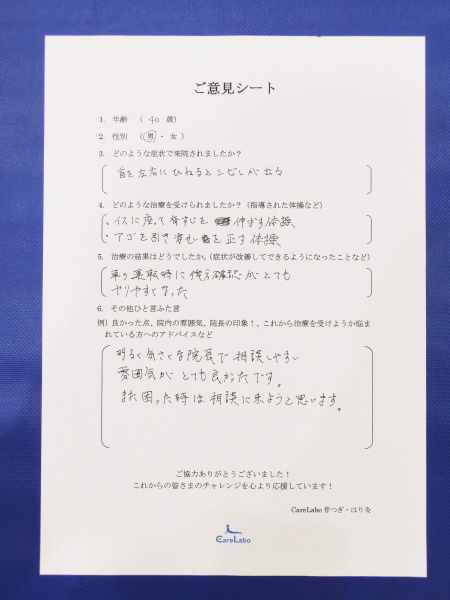 ご意見シート
1. 年齢 ( 40 歳)
2. 性別 (男・女)
3. どのような症状で来院されましたか?
首を左右にひねるとシビレが出る
4. どのような治療を受けられましたか?(指導された体操など)
・イスに座って背すじを 伸ばす体操
・アゴを引き背せ を正す体操
5. 治療の結果はどうでしたか。(症状が改善してできるようになったことなど)
車の運転時に後方確認がとても
やりやすくなった
6. その他ひと言ふた言
例) 良かった点、院内の雰囲気、院長の印象!、これから治療を受けようか悩ま
れている方へのアドバイスなど
明るく気さくな院長で相談しやすい
雰囲気がとても良かったです。
また困った時は相談に来ようと思います。
ご協力ありがとうございました!
これからの皆さまのチャレンジを心より応援しています!
CareLabo 骨つぎ・はり灸
CareLabo